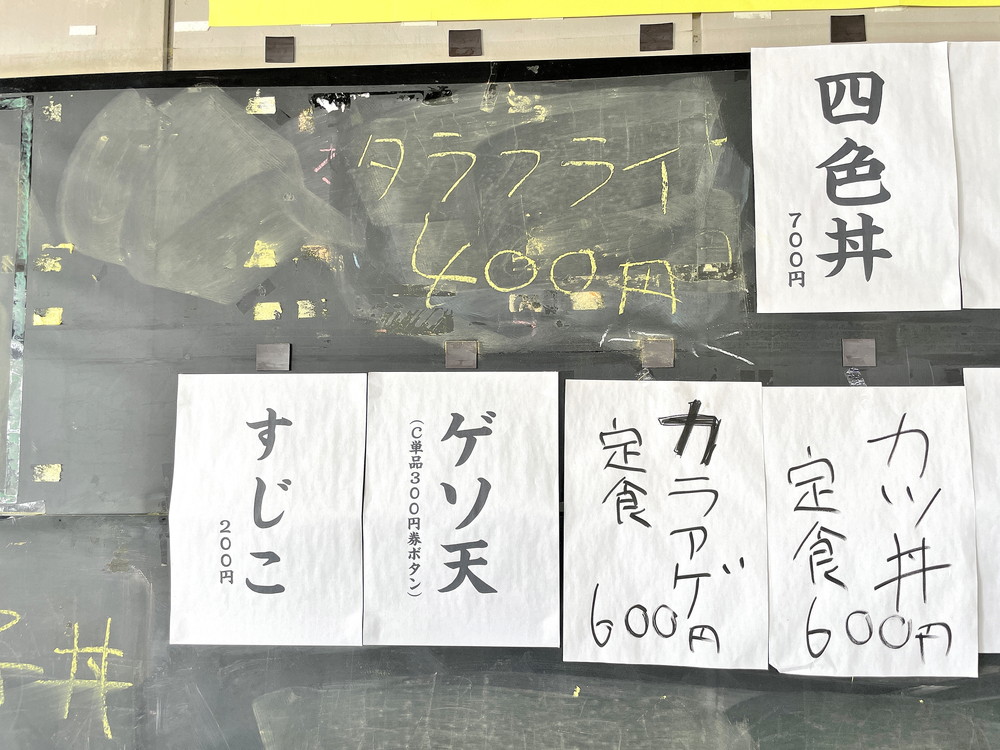 タラフライ
400円
四色丼
700円
すじこ
200円
ゲソ天
(C単品300円券ボタン)
カラアゲ
定食
600円
カツ丼
定食
600円
丼